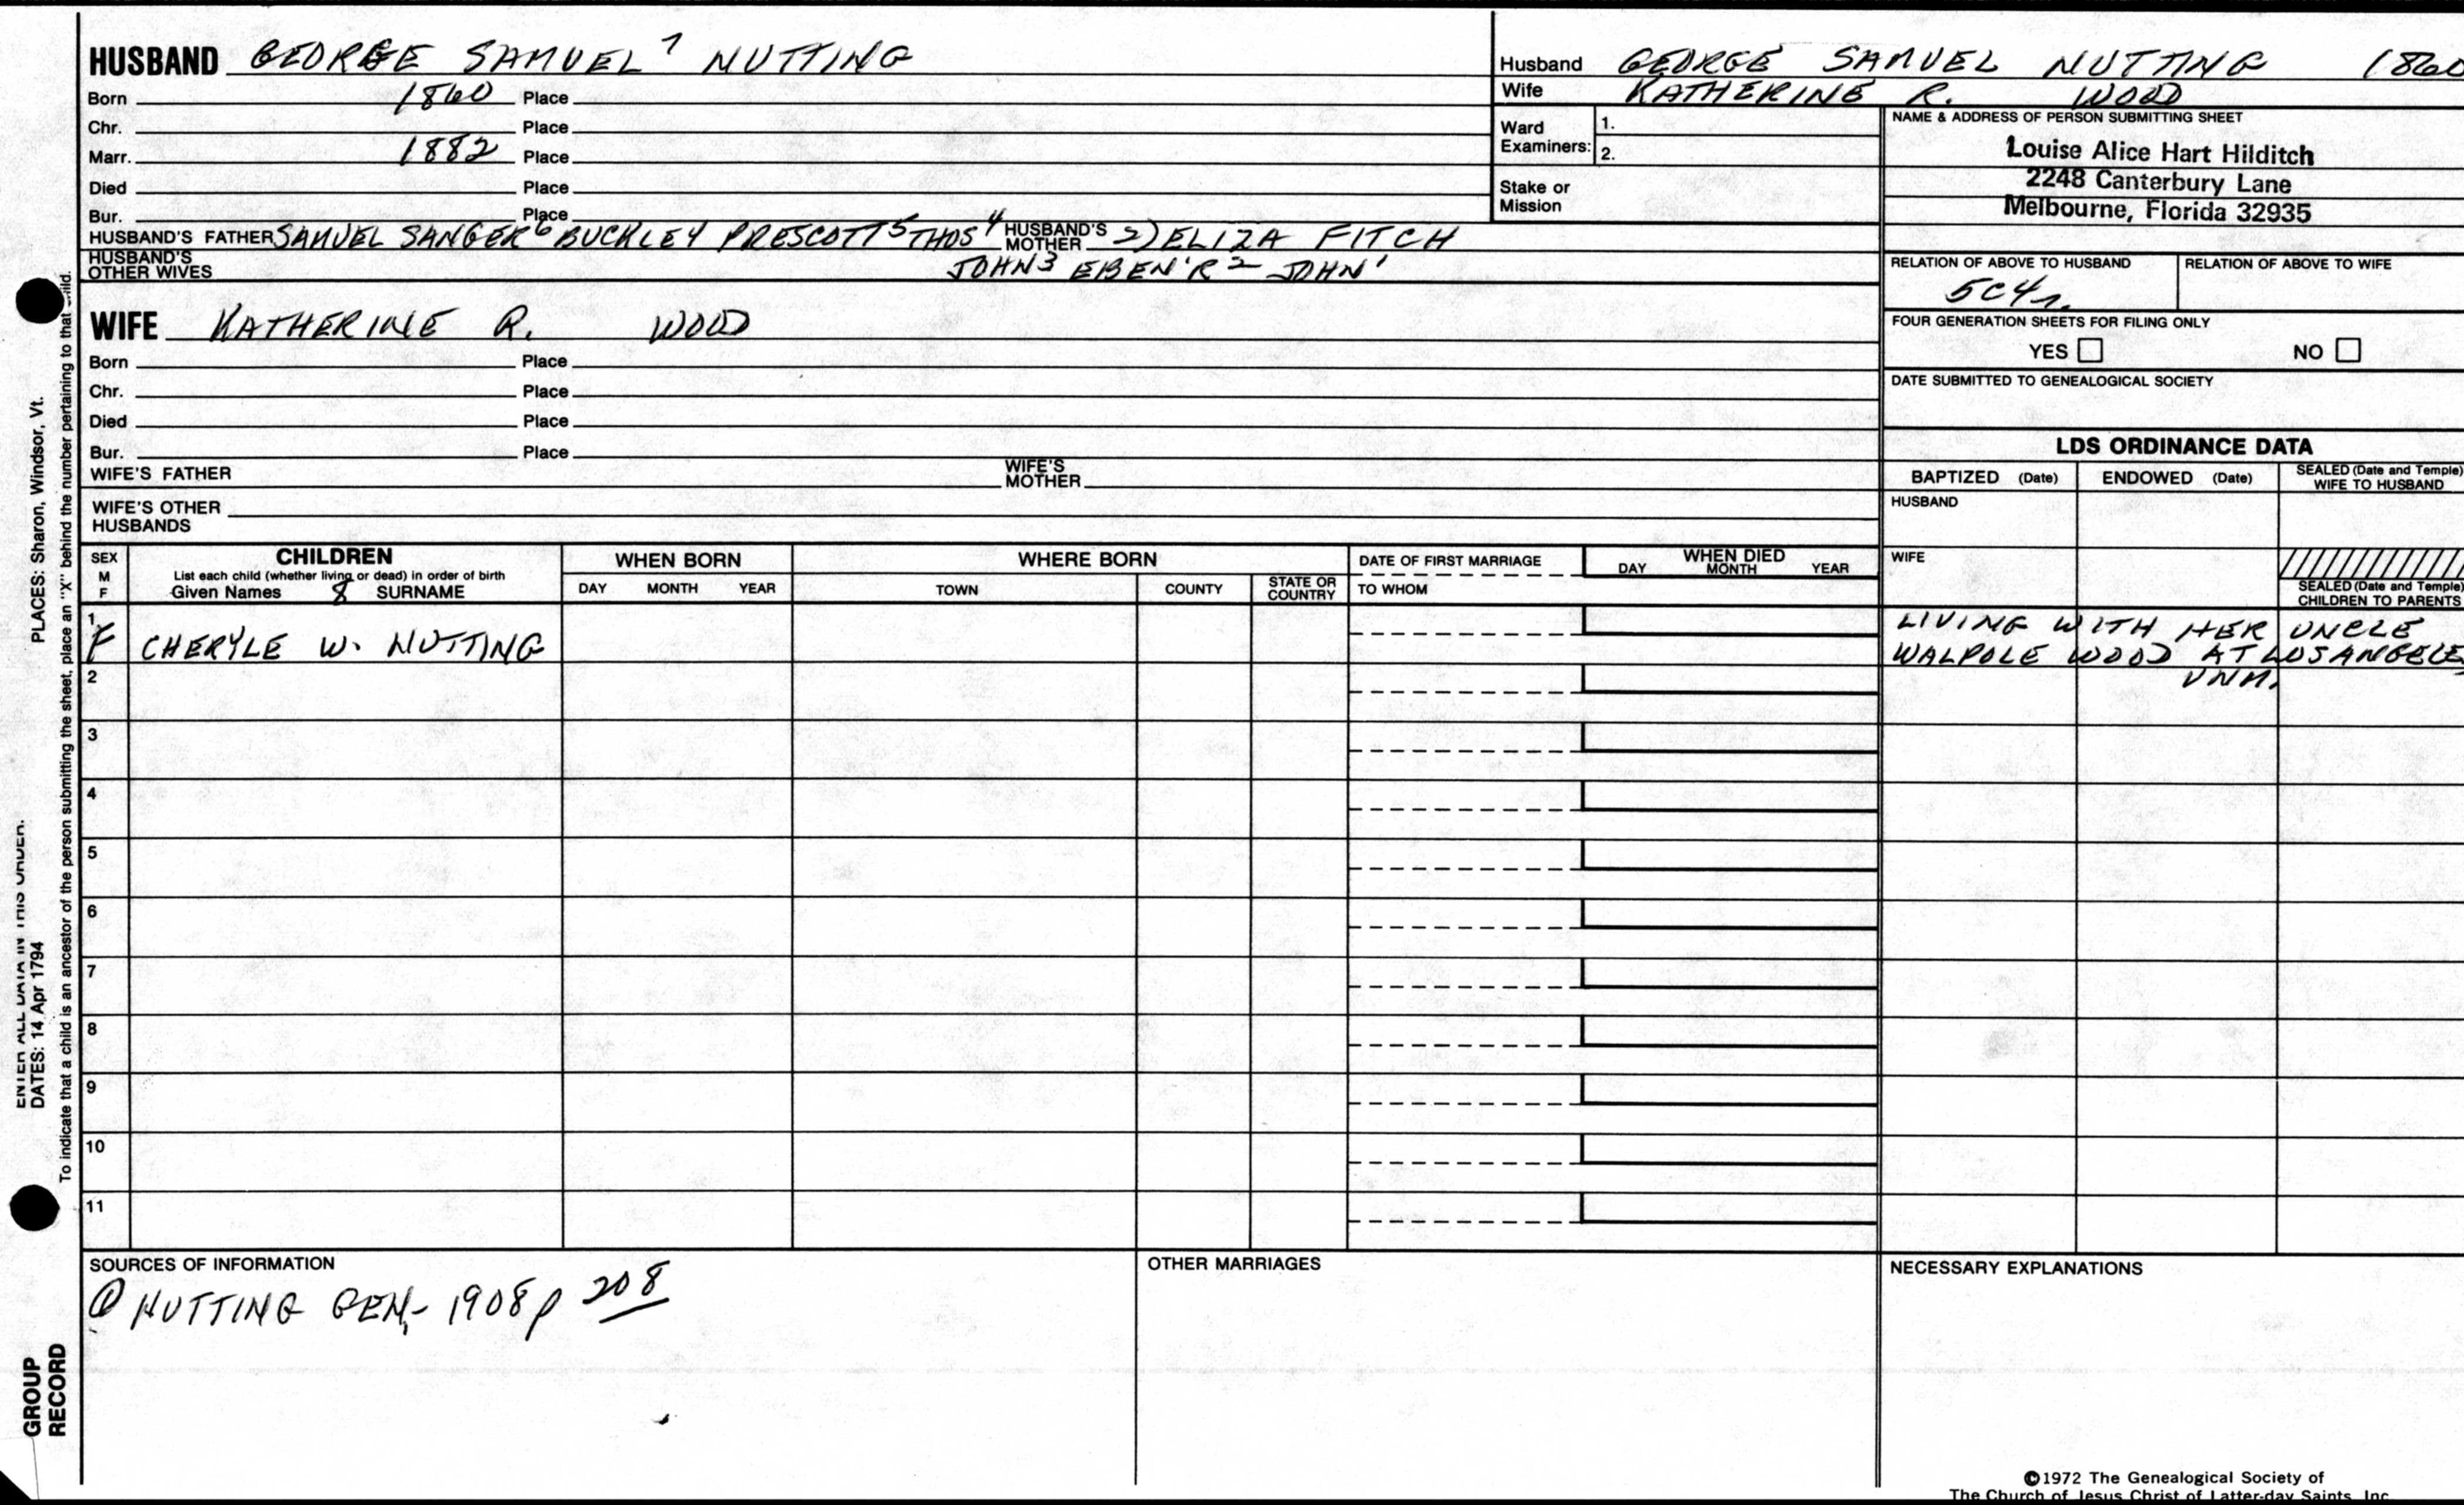 HUSBAND GEORGE SAMUEL 7 NUTTING
Born 1860 Place
Chr. Place
Marr. 1882 Place
Died Place
Bur. Place
HUSBAND'S FATHER SAMUEL SANGER 6 BUCKLEY PRESCOTT 5 THOS 4 HUSBAND'S MOTHER 2) ELIZA FITCH
HUSBAND'S OTHER WIVES JOHN 3 EBEN'R 2 JOHN 1
WIFE KATHERINE R. WOOD
Born Place
Chr. Place
Died Place
Bur. Place
WIFE'S FATHER WIFE'S MOTHER
WIFE'S OTHER HUSBANDS
Husband GEORGE SAMUEL NUTTING 1860
Wife KATHERINE R. WOOD
Ward Examiners: 1.
2.
Stake or Mission
NAME & ADDRESS OF PERSON SUBMITTING SHEET
Louise Alice Hart Hilditch
2248 Canterbury Lane
Melbourne, Florida 32935
RELATION OF ABOVE TO HUSBAND RELATION OF ABOVE TO WIFE
5C4r.
FOUR GENERATION SHEETS FOR FILING ONLY
YES NO
DATE SUBMITTED TO GENEALOGICAL SOCIETY
LDS ORDINANCE DATA
BAPTIZED (Date) ENDOWED (Date) SEALED (Date and Temple) WIFE TO HUSBAND
HUSBAND
WIFE
SEALED (Date and Temple) CHILDREN TO PARENTS
SEX M F
CHILDREN
List each child (whether living or dead) in order of birth
Given Names 8 SURNAME
WHEN BORN
DAY MONTH YEAR
WHERE BORN
TOWN COUNTY STATE OR COUNTRY
DATE OF FIRST MARRIAGE
TO WHOM
WHEN DIED
DAY MONTH YEAR
1 F CHERYLE W. NUTTING
LIVING WITH HER UNCLE
WALPOLE WOOD AT LOS ANGELES
UNM.
2
3
4
5
6
7
8
9
10
11
SOURCES OF INFORMATION
NUTTING GEN. 1908 p 208
OTHER MARRIAGES
NECESSARY EXPLANATIONS
©1972 The Genealogical Society of
The Church of Jesus Christ of Latter-day Saints, Inc.
ENTER ALL DATA IN THIS ORDER.
DATES: 14 Apr 1794 PLACES: Sharon, Windsor, Vt.
To indicate that a child is an ancestor of the person submitting the sheet, place an "X" behind the number pertaining to that child.
GROUP
RECORD